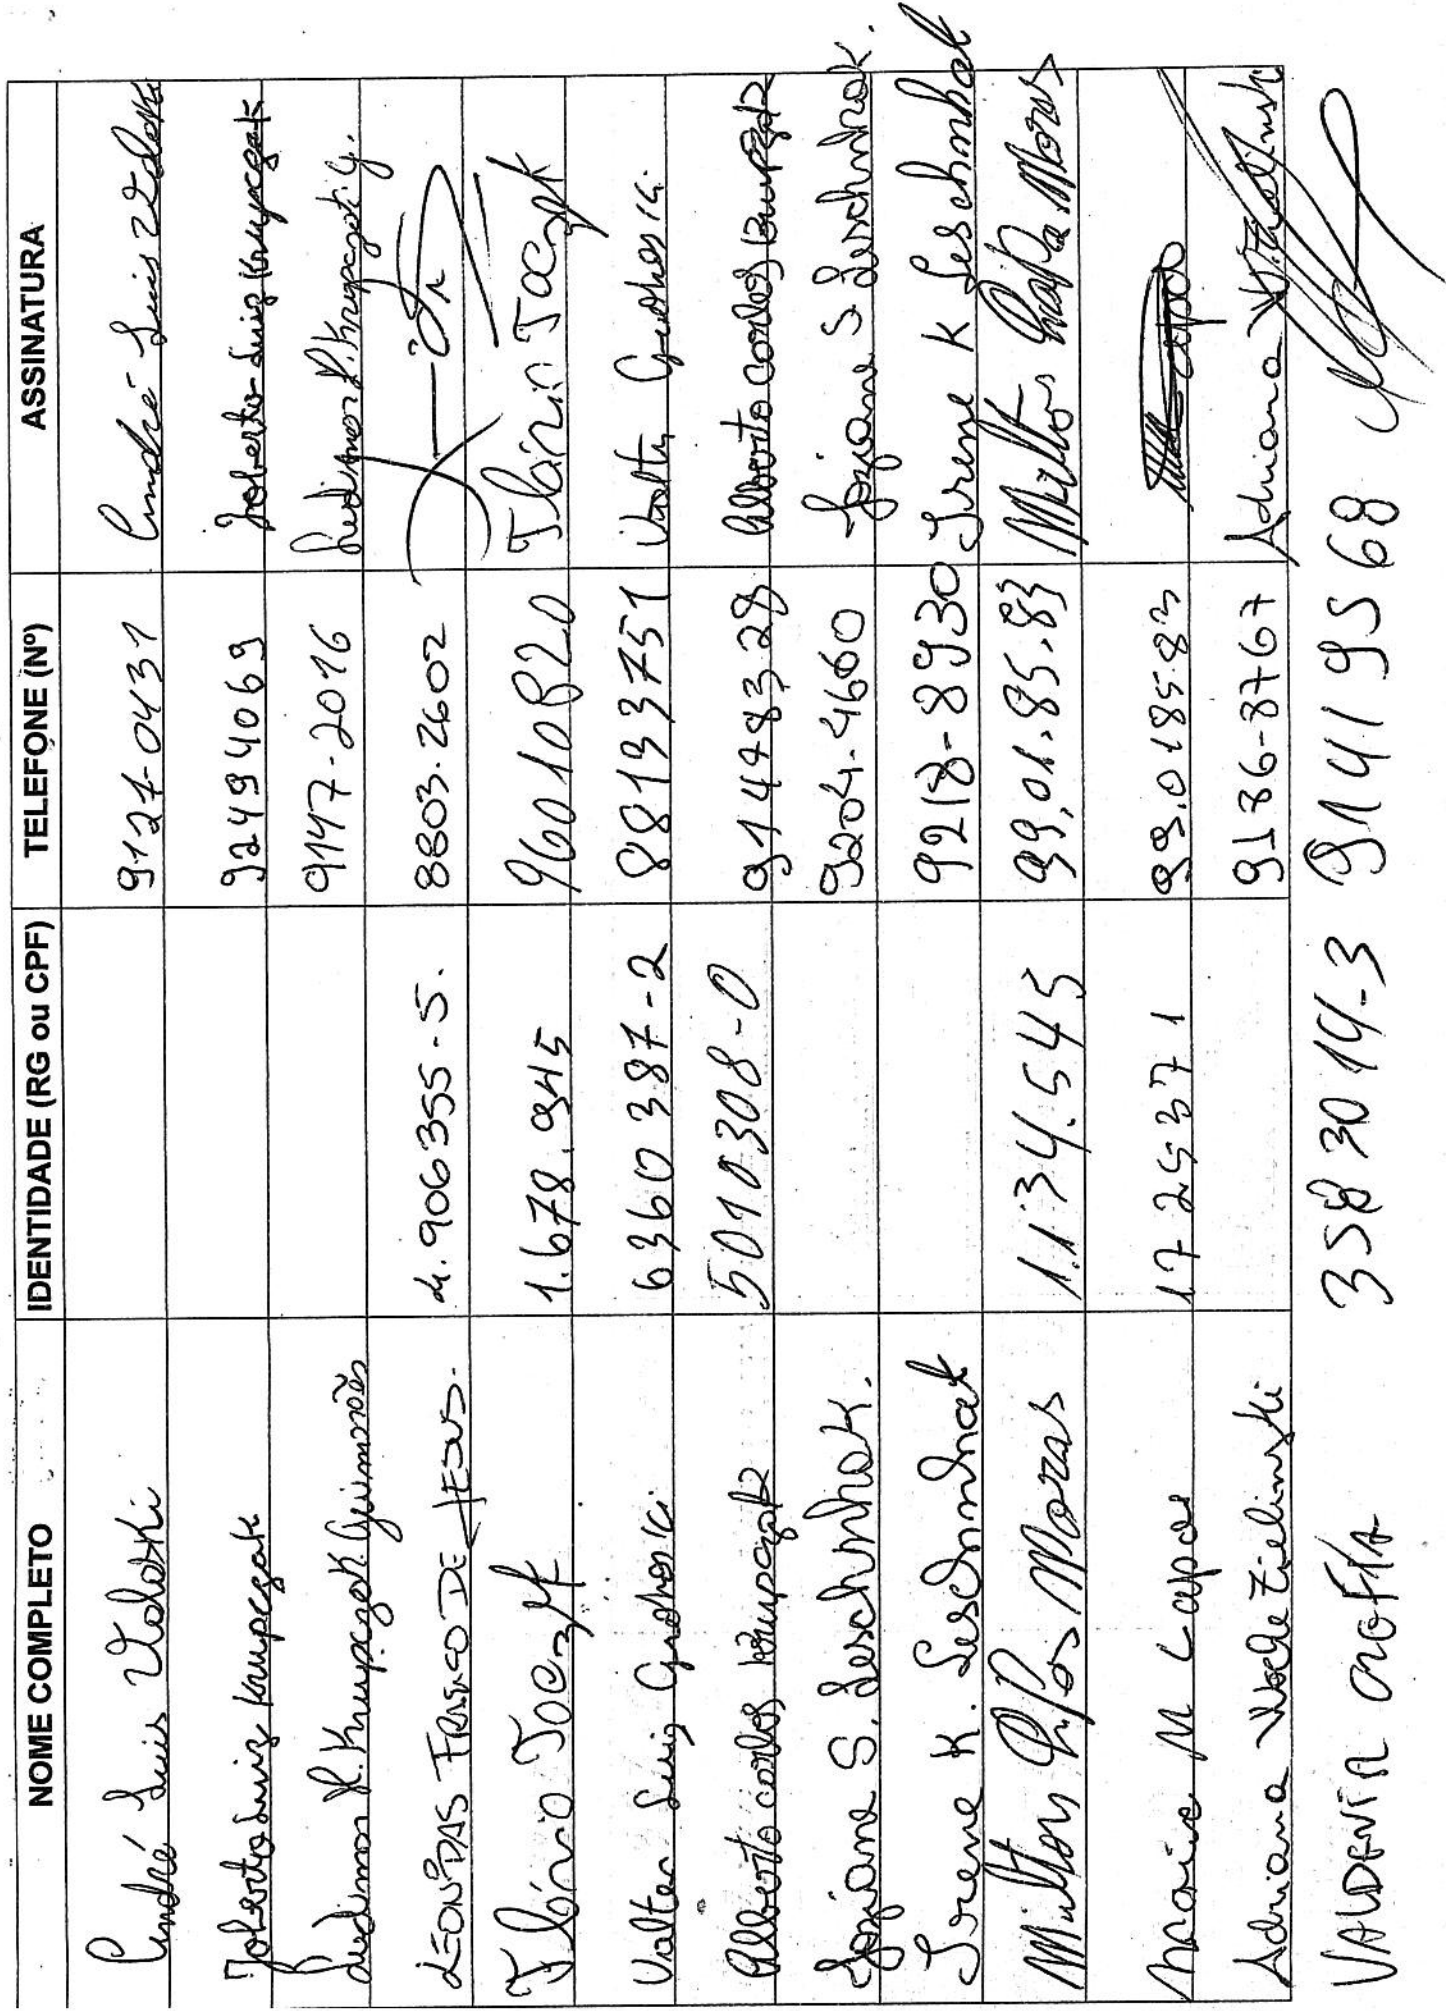 NOME COMPLETO IDENTIDADE (RG ou CPF) TELEFONE (Nº) ASSINATURA
André Luis 9127-0431 André Luis
Joberto Luiz Krupczak 92494069 Joberto Luiz Krupczak
Ludimar K. Krupczak Guimarães 9147-2016 Ludimar K. Krupczak G.
LEONIDAS FRANCO DE JESUS. 4.906355-5. 8803.2602
Flório Toczek 1.678.945 96010820 Flório Toczek
Valter Luiz 6360387-2 88133751 Valter
Alberto Carlos Krupczak 5010308-0 91448328 Alberto Carlos Krupczak
Joziane S. Leschnhak. 9204-4660 Joziane S Leschnhak.
Irene K. Leschnhak 9218-8930 Irene K Leschnhak
Milton Moras 1.134.545 99.01.85.83 Milton Moras
Maria M Lapas 1725371 99.0185.83
Adriana Zielinski 9186-8767 Adriana Zielinski
VALDENIR 3583014-3 91419568